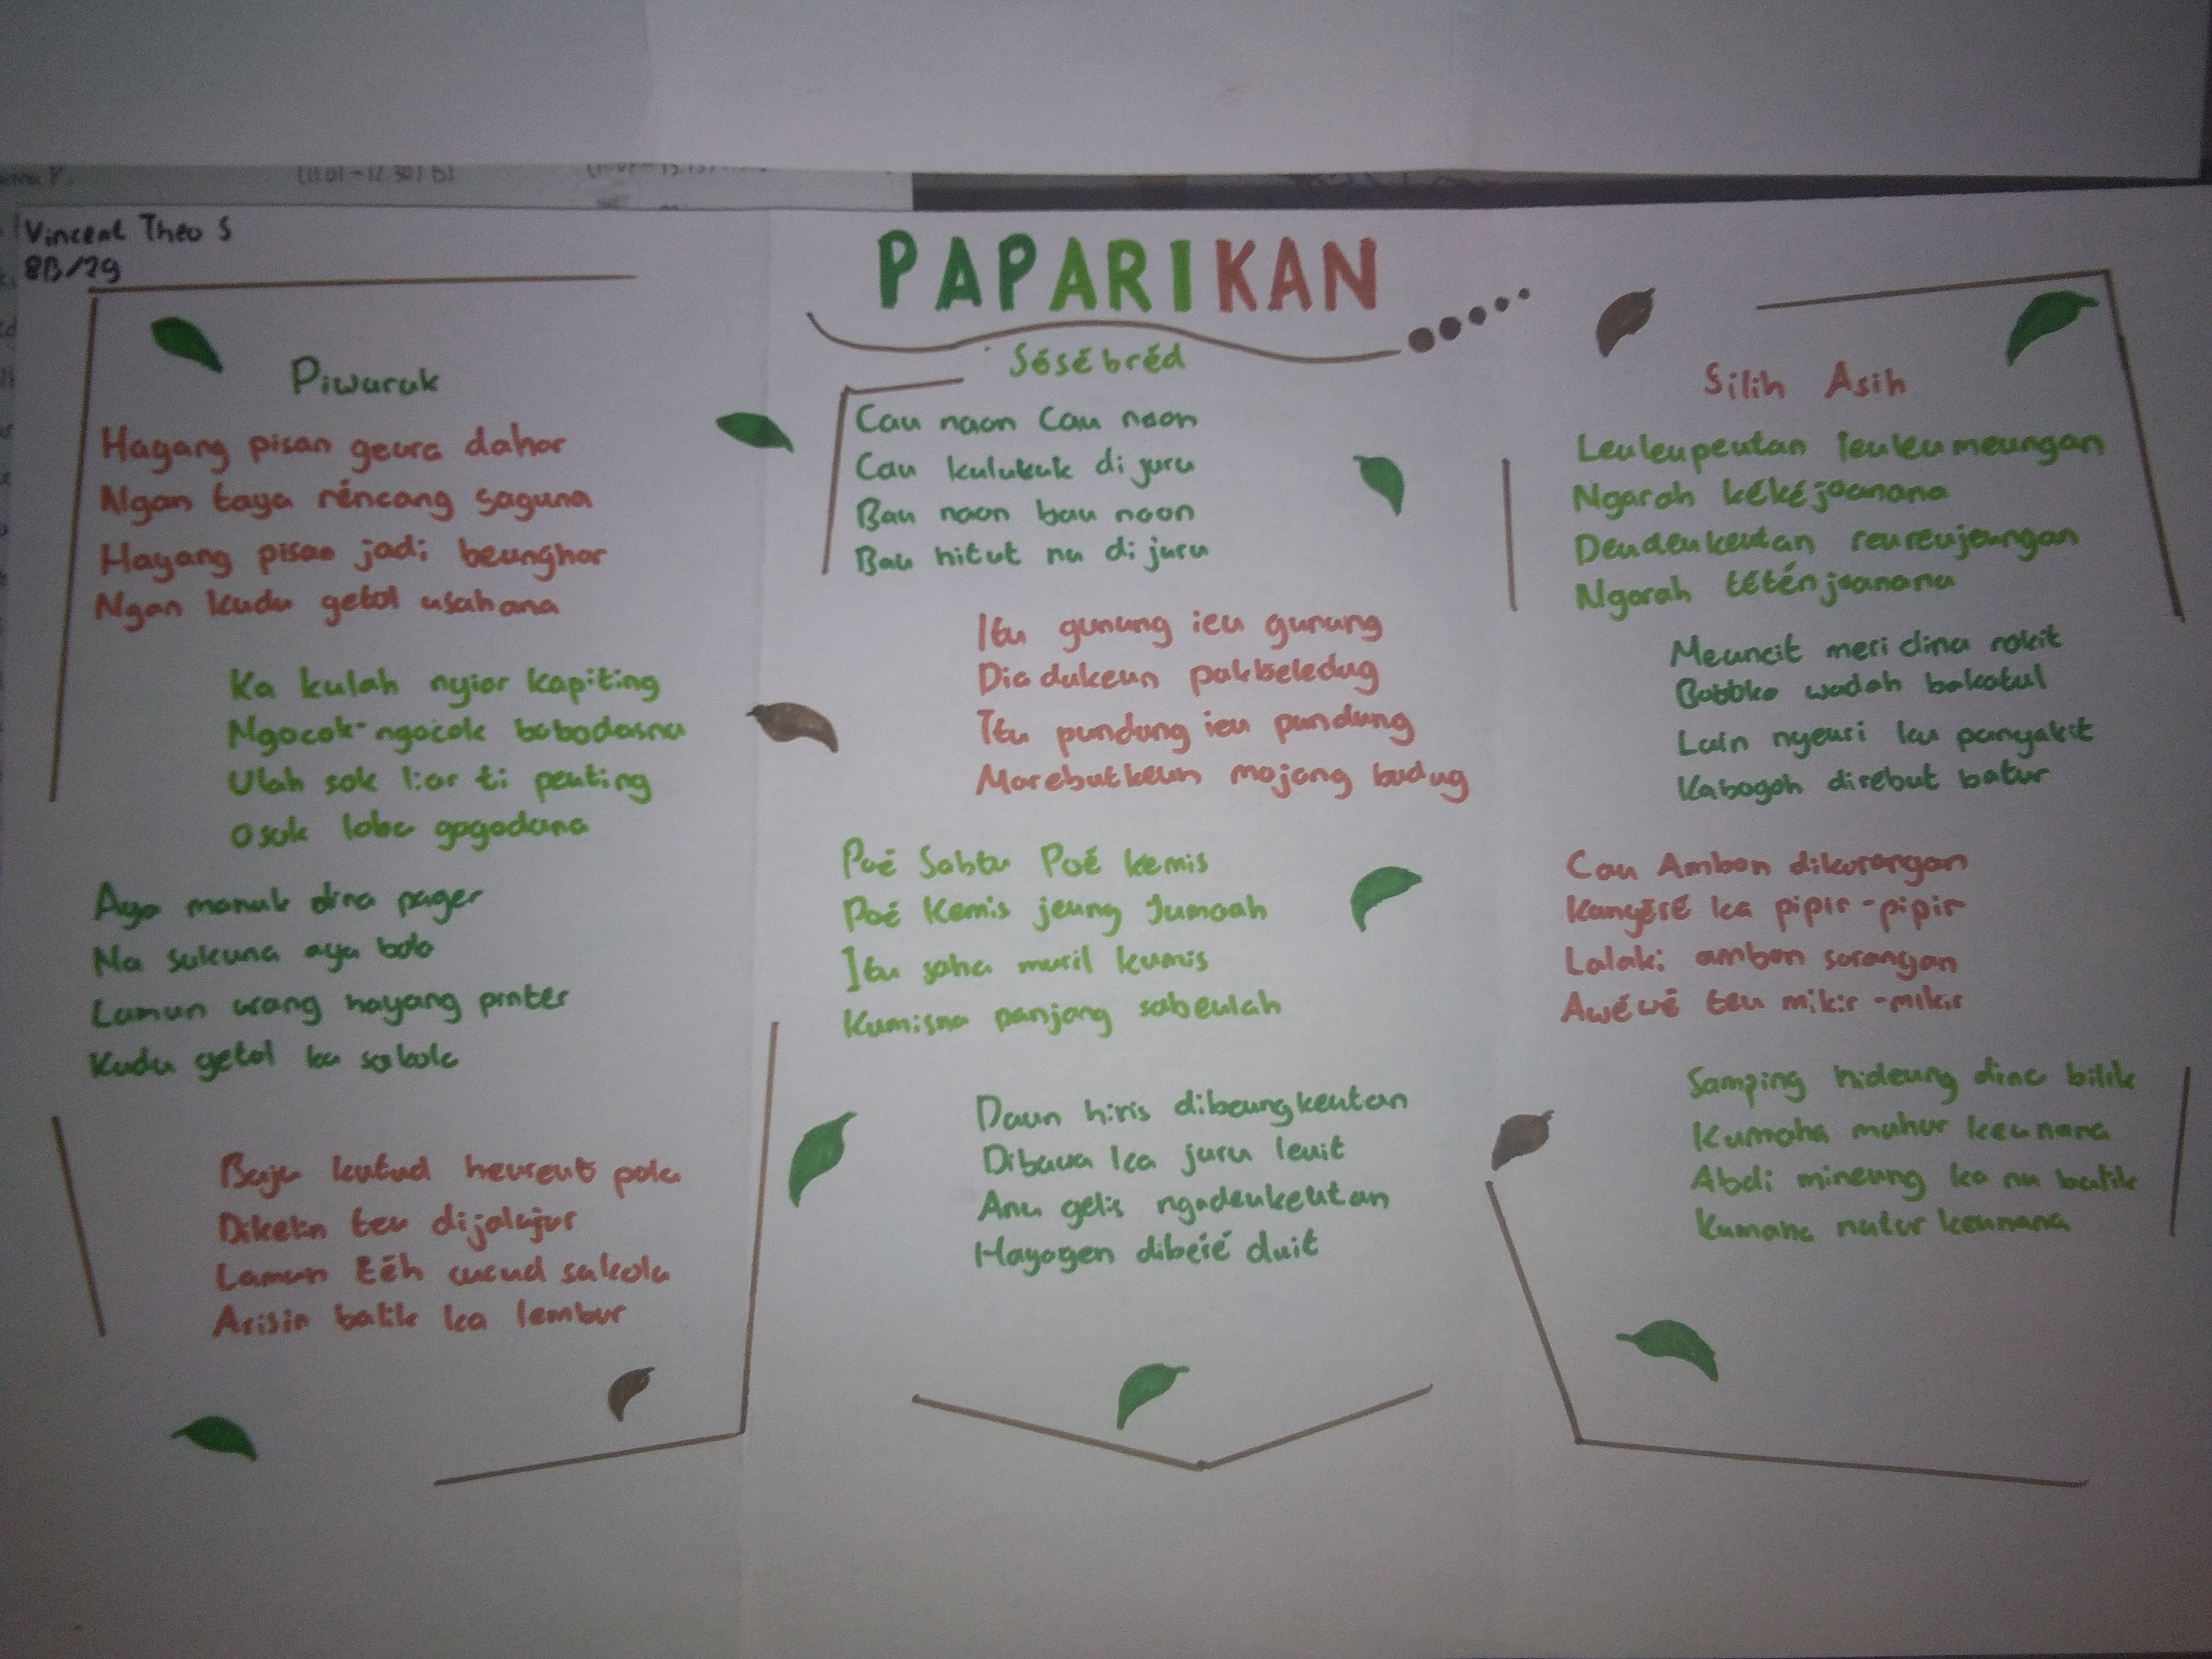 (11.01-12.30) DI
Vincent Theo S
8B/29
PAPARIKAN
Piwuruk
Hayang pisan geura dahar
Ngan taya réncang saguna
Hayang pisan jadi beunghar
Ngan kudu getol usahana
Ka kulah nyiar kapiting
Ngocok-ngocok babodasna
Ulah sok liar ti peuting
Osok loba gogodana
Aya manuk dina pager
Na sukuna aya bolo
Lamun urang hayang pinter
Kudu getol ka sakola
Baju kutud heureut pola
Dikelin teu dijalujur
Lamun téh cucud sakola
Arisin balik ka lembur
Sésébréd
Cau naon Cau naon
Cau kulutuk di juru
Bau naon bau naon
Bau hitut nu di juru
Itu gunung ieu gunung
Diadukeun pakbeledug
Itu pundung ieu pundung
Marebutkeun mojang budug
Poé Sabtu Poé kemis
Poé Kemis jeung Jumaah
Itu saha muril kumis
Kumisna panjang sabeulah
Daun hiris dibeungkeutan
Dibawa ka juru leuit
Anu gelis ngadeukeutan
Hayogen dibéré duit
Silih Asih
Leuleupeutan leuleumeungan
Ngarah kékéjoanana
Deudeukeutan reureujeungan
Ngarah téténjoanana
Meuncit meri dina rakit
Boboko wadah bakatul
Lain nyeuri ku panyakit
Kabogoh direbut batur
Cau Ambon dikorangan
Kanyéré ka pipir-pipir
Lalaki ambon sorangan
Awéwé teu mikir-mikir
Samping hideung dina bilik
Kumaha nuhur keunana
Abdi mineung ka nu balik
Kumaha natur keunana